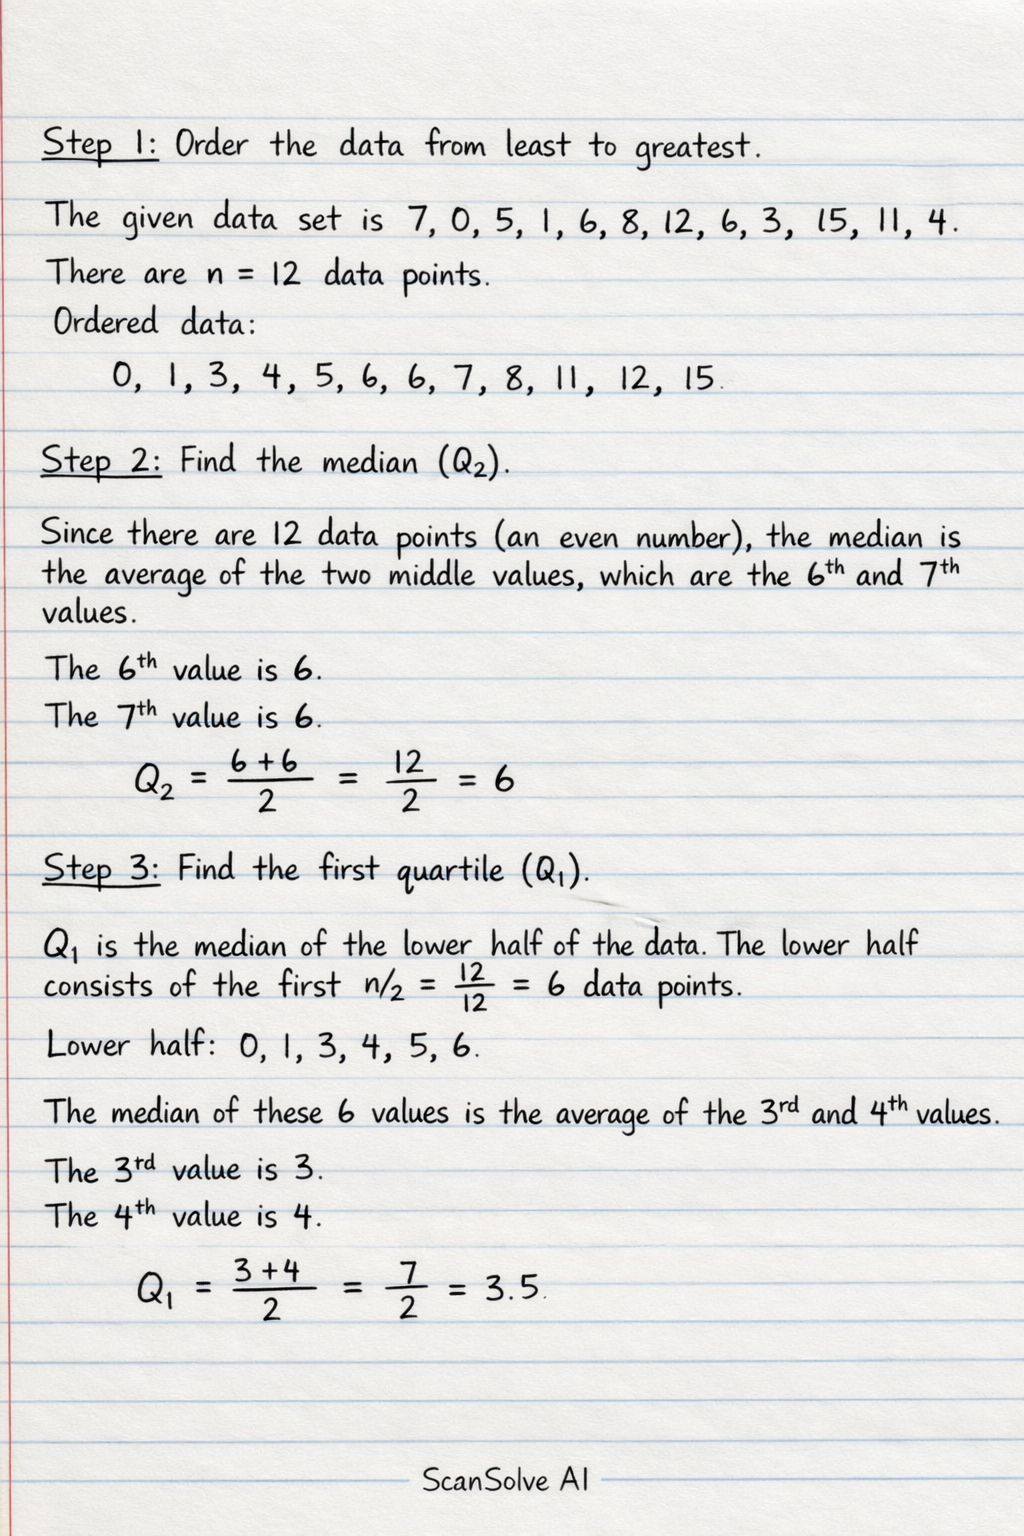 Step 1: Order the data from least to greatest.
The given data set is 7, 0, 5, 1, 6, 8, 12, 6, 3, 15, 11, 4.
There are n = 12 data points.
Ordered data:
0, 1, 3, 4, 5, 6, 6, 7, 8, 11, 12, 15.
Step 2: Find the median (Q₂).
Since there are 12 data points (an even number), the median is
the average of the two middle values, which are the 6th and 7th
values.
The 6th value is 6.
The 7th value is 6.
Q₂ = (6+6)/2 = 12/2 = 6
Step 3: Find the first quartile (Q₁).
Q₁ is the median of the lower half of the data. The lower half
consists of the first n/2 = 12/12 = 6 data points.
Lower half: 0, 1, 3, 4, 5, 6.
The median of these 6 values is the average of the 3rd and 4th values.
The 3rd value is 3.
The 4th value is 4.
Q₁ = (3+4)/2 = 7/2 = 3.5.
ScanSolve AI